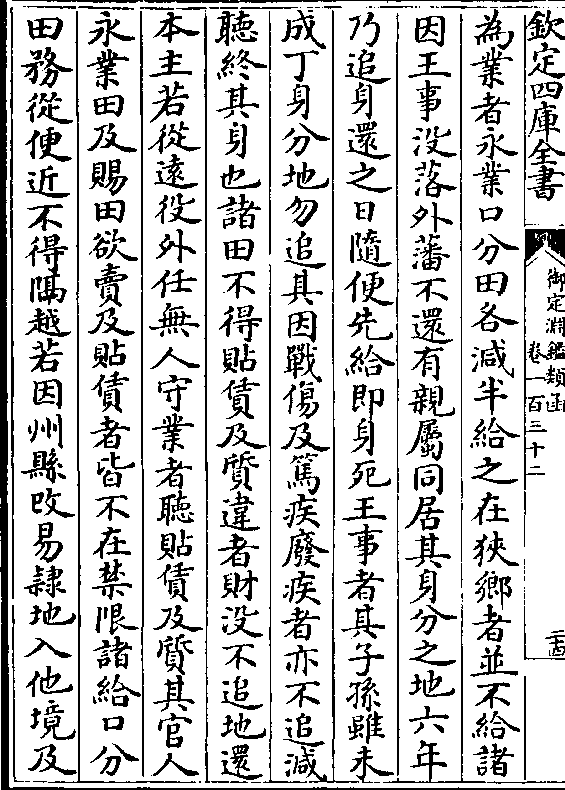 欽定四庫全書
御定淵鑑類函
卷一百三十二
二十四
為業者永業口分田各減半給之在狹鄉者並不給諸
因王事没落外藩不還有親屬同居其身分之地六年
乃追身還之日隨便先給即身死王事者其子孫雖未
成丁身分地勿追其因戰傷及篤疾廢疾者亦不追減
聽終其身也諸田不得貼賃及質違者財没不追地還
本主若從遠役外任無人守業者聽貼賃及質其官人
永業田及賜田欲賣及貼賃者皆不在禁限諸給口分
田務從便近不得隔越若因州縣改易隷地入他境及